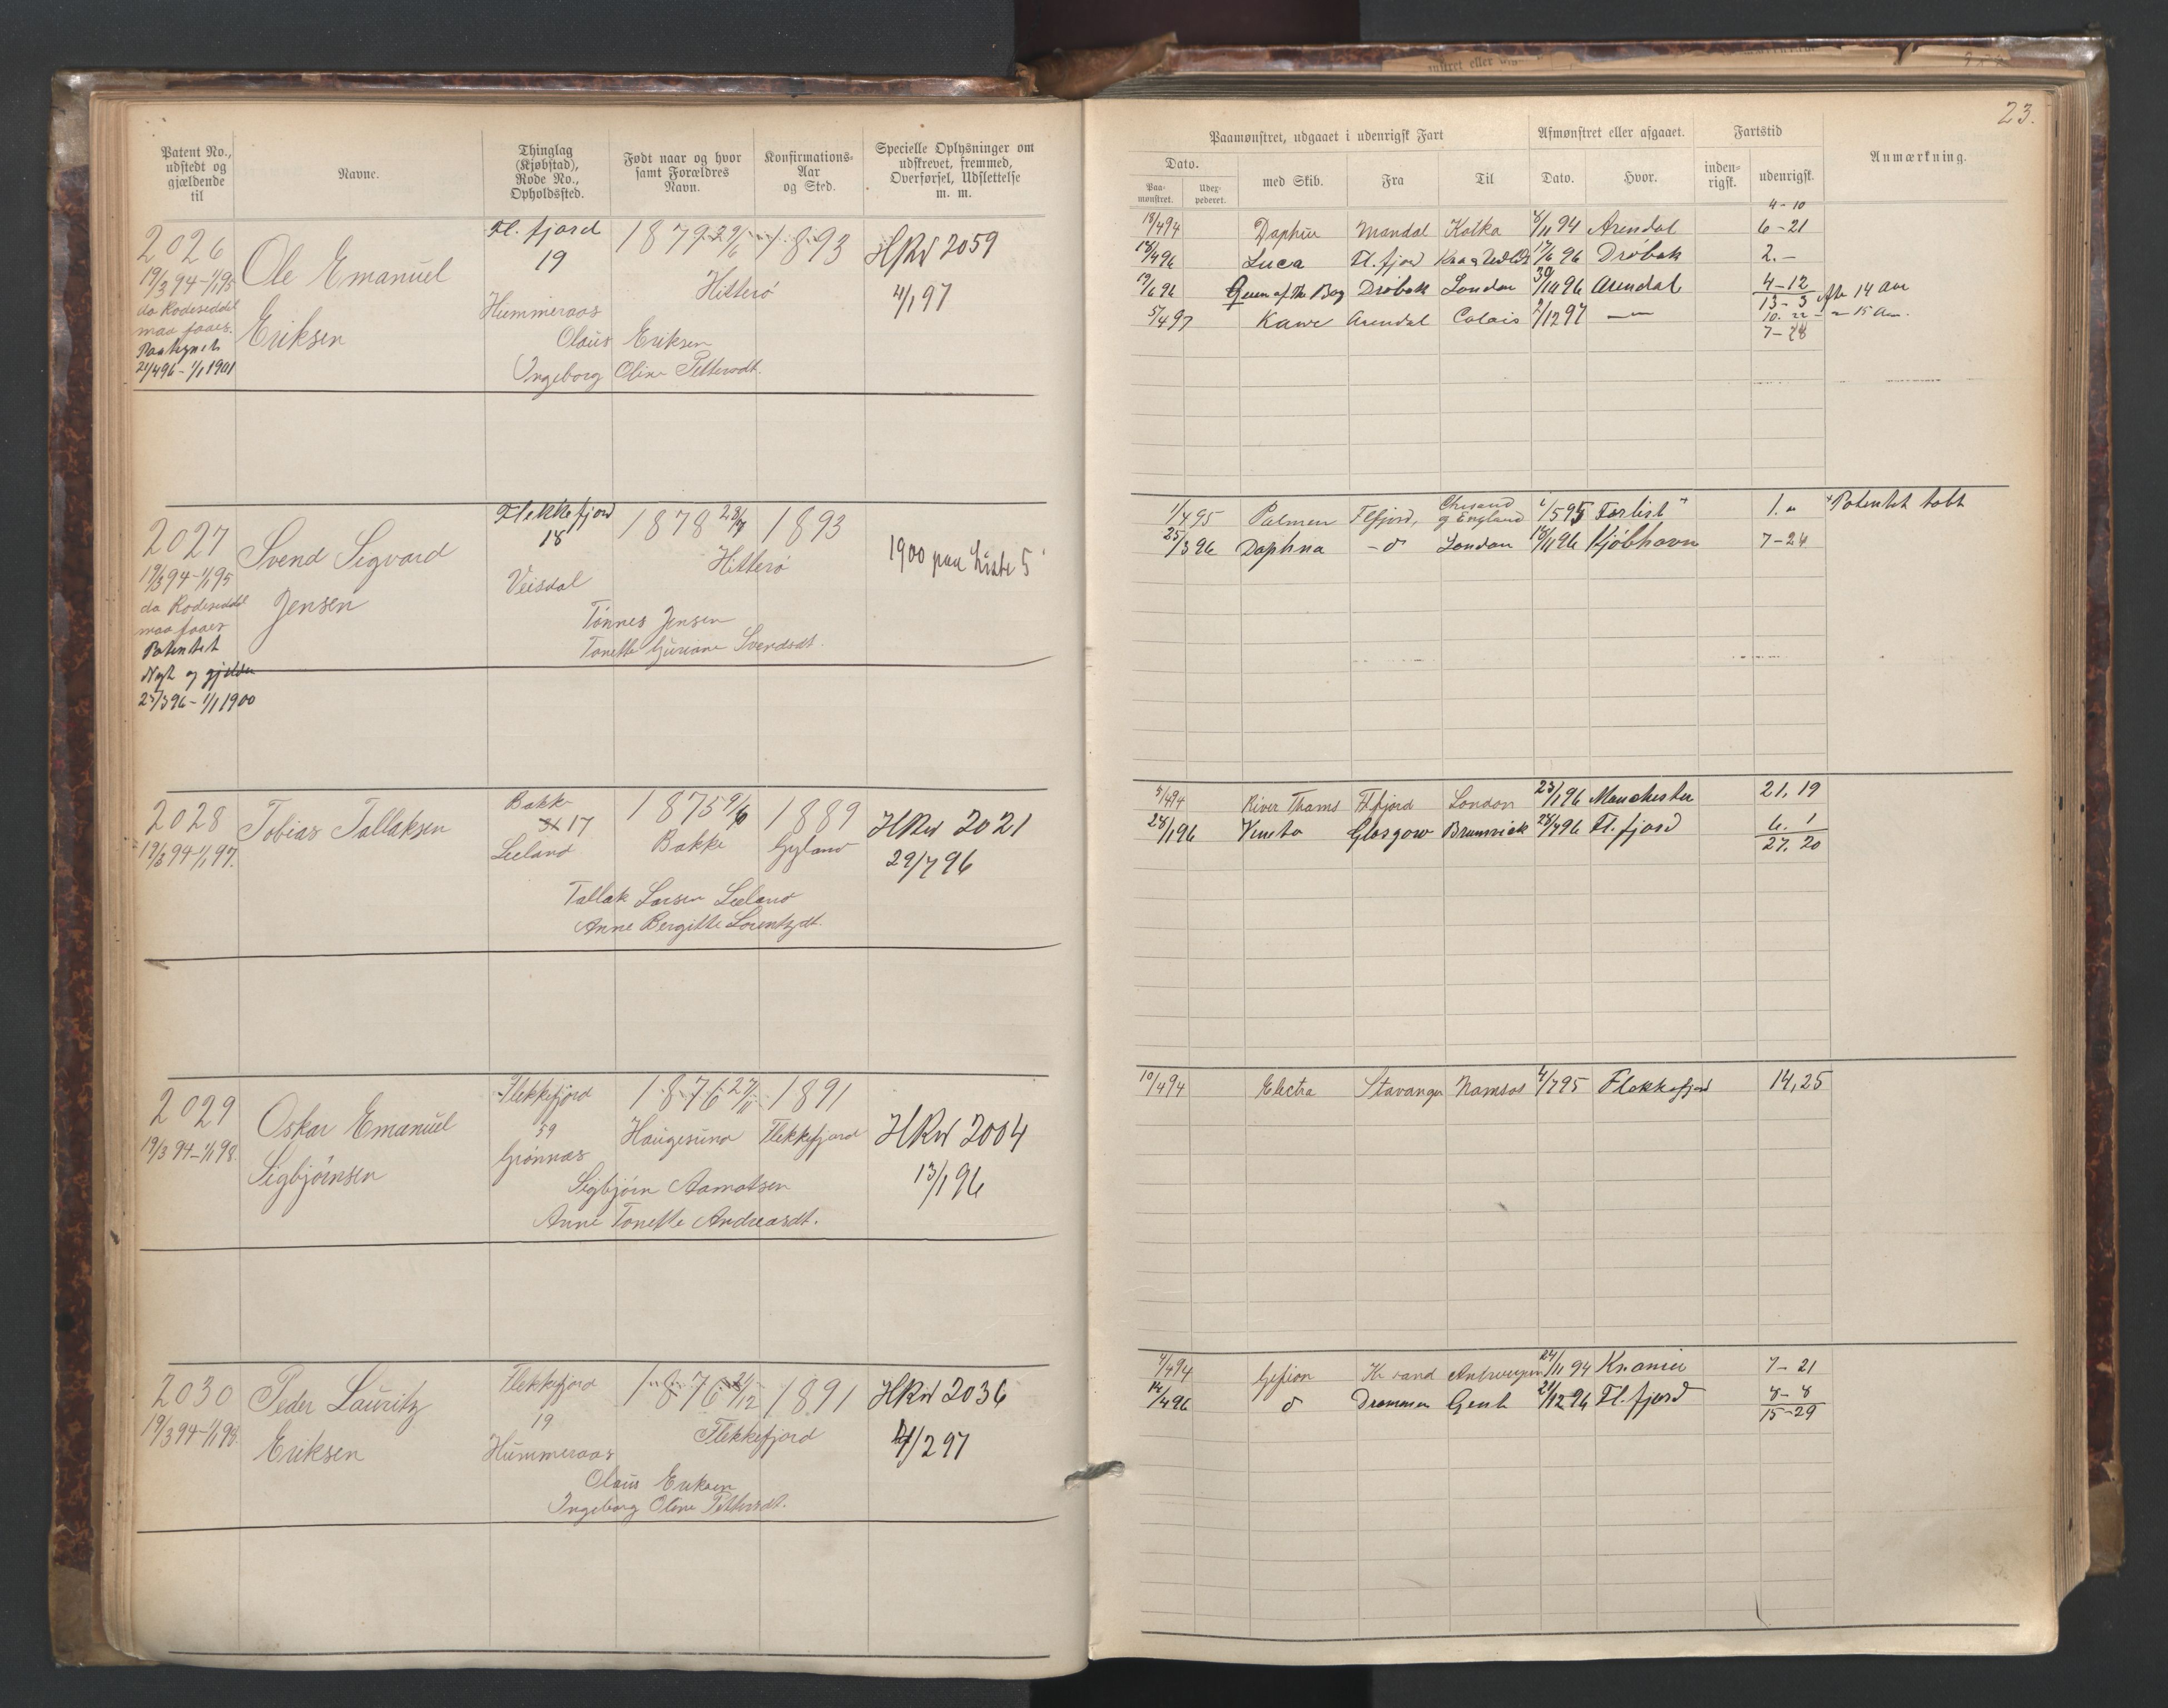 Patent No.,
udstedt og
gjældende
til
Navne.
Thinglag
(Kjøbstad),
Rode No.,
Opholdssted.
Født naar og hvor
samt Forældres
Navn.
Konfirmations-
Aar
og Sted.
Specielle Oplysninger om
udskrevet, fremmed,
Overførsel, Udslettelse
m. m.
2026
19/3 94-1/1 95
da Rodeseddel
maa faaes.
21/4 96 - 1/1 1901
Ole Emanuel
Eriksen
Fl. fjord
19
Hummeraas
1879 29/6
Hitterö
Olaus Eriksen
Ingeborg Oline Pettersdt.
1893
HRW 2059
4/1 97
2027
19/3 94-1/1 95
da Rodeseddel
maa faaes
Patentet
Nyt og gjelder
25/3 96 - 1/1 1900
Svend Sigvard
Jensen
Flekkefjord
18
Veisdal
1878 28/7
Hitterö
Tönnes Jensen
Tonette Guriane Svendsdt.
1893
1900 paa Liste 5
2028
19/3 94-1/1 97.
Tobias Tallaksen
Bakke
17
Leeland
1875 9/6
Bakke
Tallak Larsen Leeland
Anne Bergitte Lorentzdt.
1889
Gyland
HRW 2021
29/7 96
2029
19/3 94-1/1 98.
Oskar Emanuel
Sigbjörnsen
Flekkefjord
59
Grönnæs
1876 27/11
Haugesund
Sigbjörn Aamotsen
Anne Tonette Andreasdt.
1891
Flekkefjord
HRW 2004
13/1 96
2030
19/3 94-1/1 98.
Peder Lauritz
Eriksen
Flekkefjord
19
Hummeraas
1876 21/12
Flekkefjord
Olaus Eriksen
Ingeborg Oline Pettersdt.
1891
HRW 2036
4/2 97
23.
Paamønstret, udgaaet i udenrigsk Fart
Afmønstret eller afgaaet.
Fartstid
Anmærkning.
Dato.
Paa-
mønstret.
Udex-
pederet.
med Skib.
Fra
Til
Dato.
Hvor.
inden-
rigsk.
udenrigsk.
4-10
18/4 94 Daphne Mandal Kotka 8/11 94 Arendal 6-21
18/4 96 Luca Fl. fjord 17/6 96 Dröbak 2.-
19/6 96 Queen of the Bay Dröbak London 30/11 96 Arendal 4-12
13-3
5/4 97 Arendal Calais 2/12 97 -"- 10. 22
7-28
1/4 95 Palmen Flfjord, Chrsand
og England 1/5 95 Forlist + 1. " + Patentet tabt
25/3 96 Daphna - o London 18/11 96 Kjöbhavn 7-24
5/4 94 River Thams Flfjord London 23/1 96 Manchester 21, 19
28/1 96 Glasgow Brunsvick 28/7 96 Fl. fjord 6. 1
27. 20
10/4 94 Electra Stavanger Namsos 4/7 95 Flekkefjord 14,25
4/4 94 Gefion Kr.sand Antwerpen 24/11 94 Kr.ania 7-21
14/4 96 o Drammen Gent 21/12 96 Fl. fjord 8-8
15-29